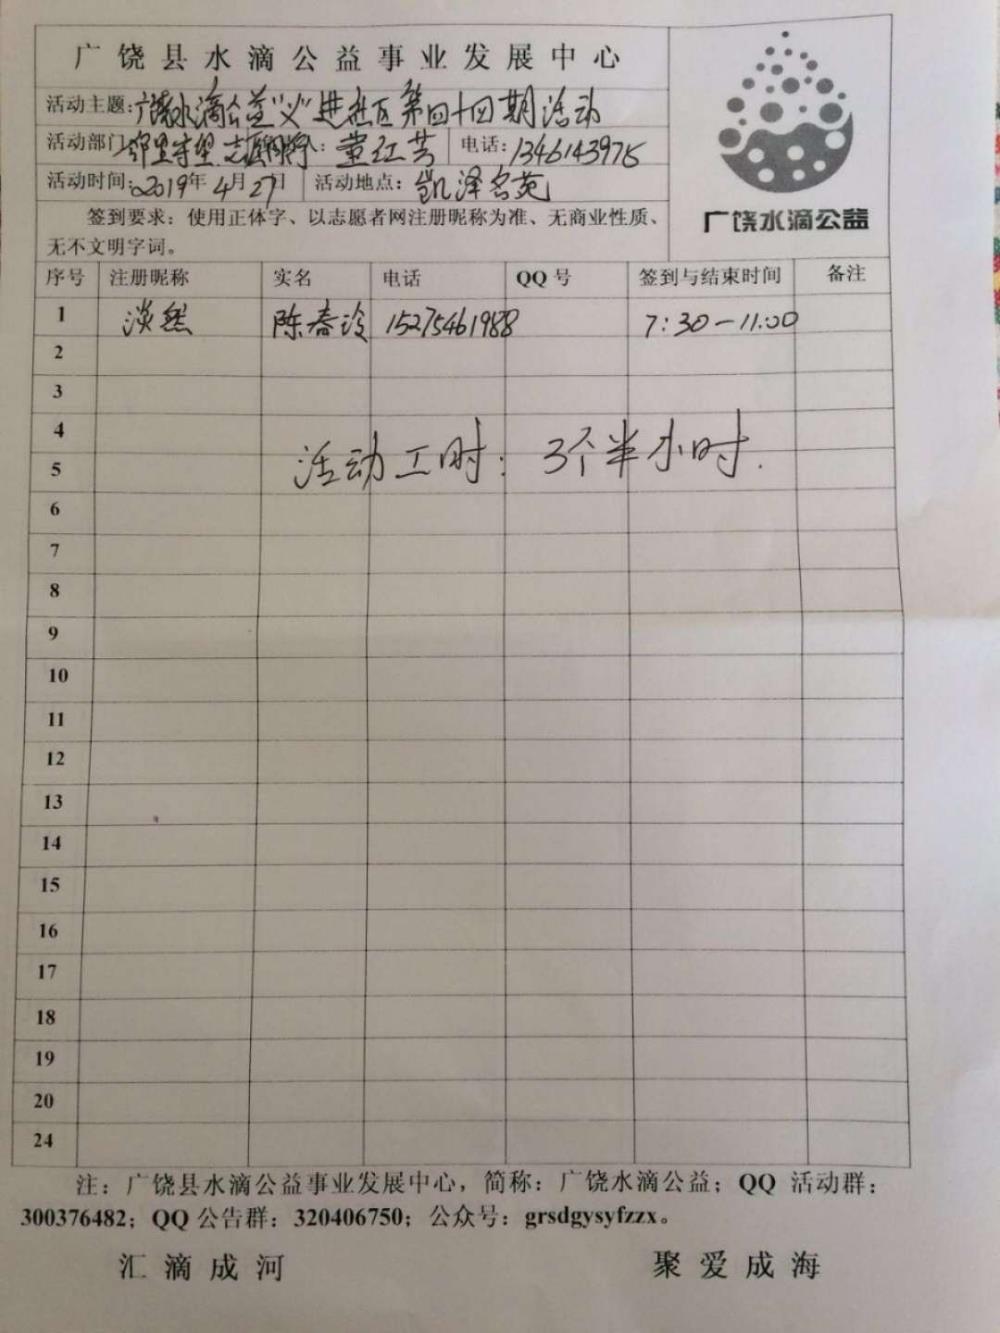 广饶县水滴公益事业发展中心
活动主题:广饶水滴公益"义"进社区第四十四期活动
活动部门 邻里守望 志愿 : 董红芸 电话: 1346143975
活动时间: 2019年4月27日 活动地点: 凯泽名苑
签到要求：使用正体字、以志愿者网注册昵称为准、无商业性质、
无不文明字词。
广饶水滴公益
序号 注册昵称 实名 电话 QQ号 签到与结束时间 备注
1 淡然 陈春泠 15275461988 7:30-11:00
2
3
4
活动工时: 3个半小时.
5
6
7
8
9
10
11
12
13
14
15
16
17
18
19
20
24
注：广饶县水滴公益事业发展中心，简称：广饶水滴公益；QQ 活动群：
300376482；QQ公告群：320406750；公众号：grsdgysyfzzx。
汇滴成河 聚爱成海